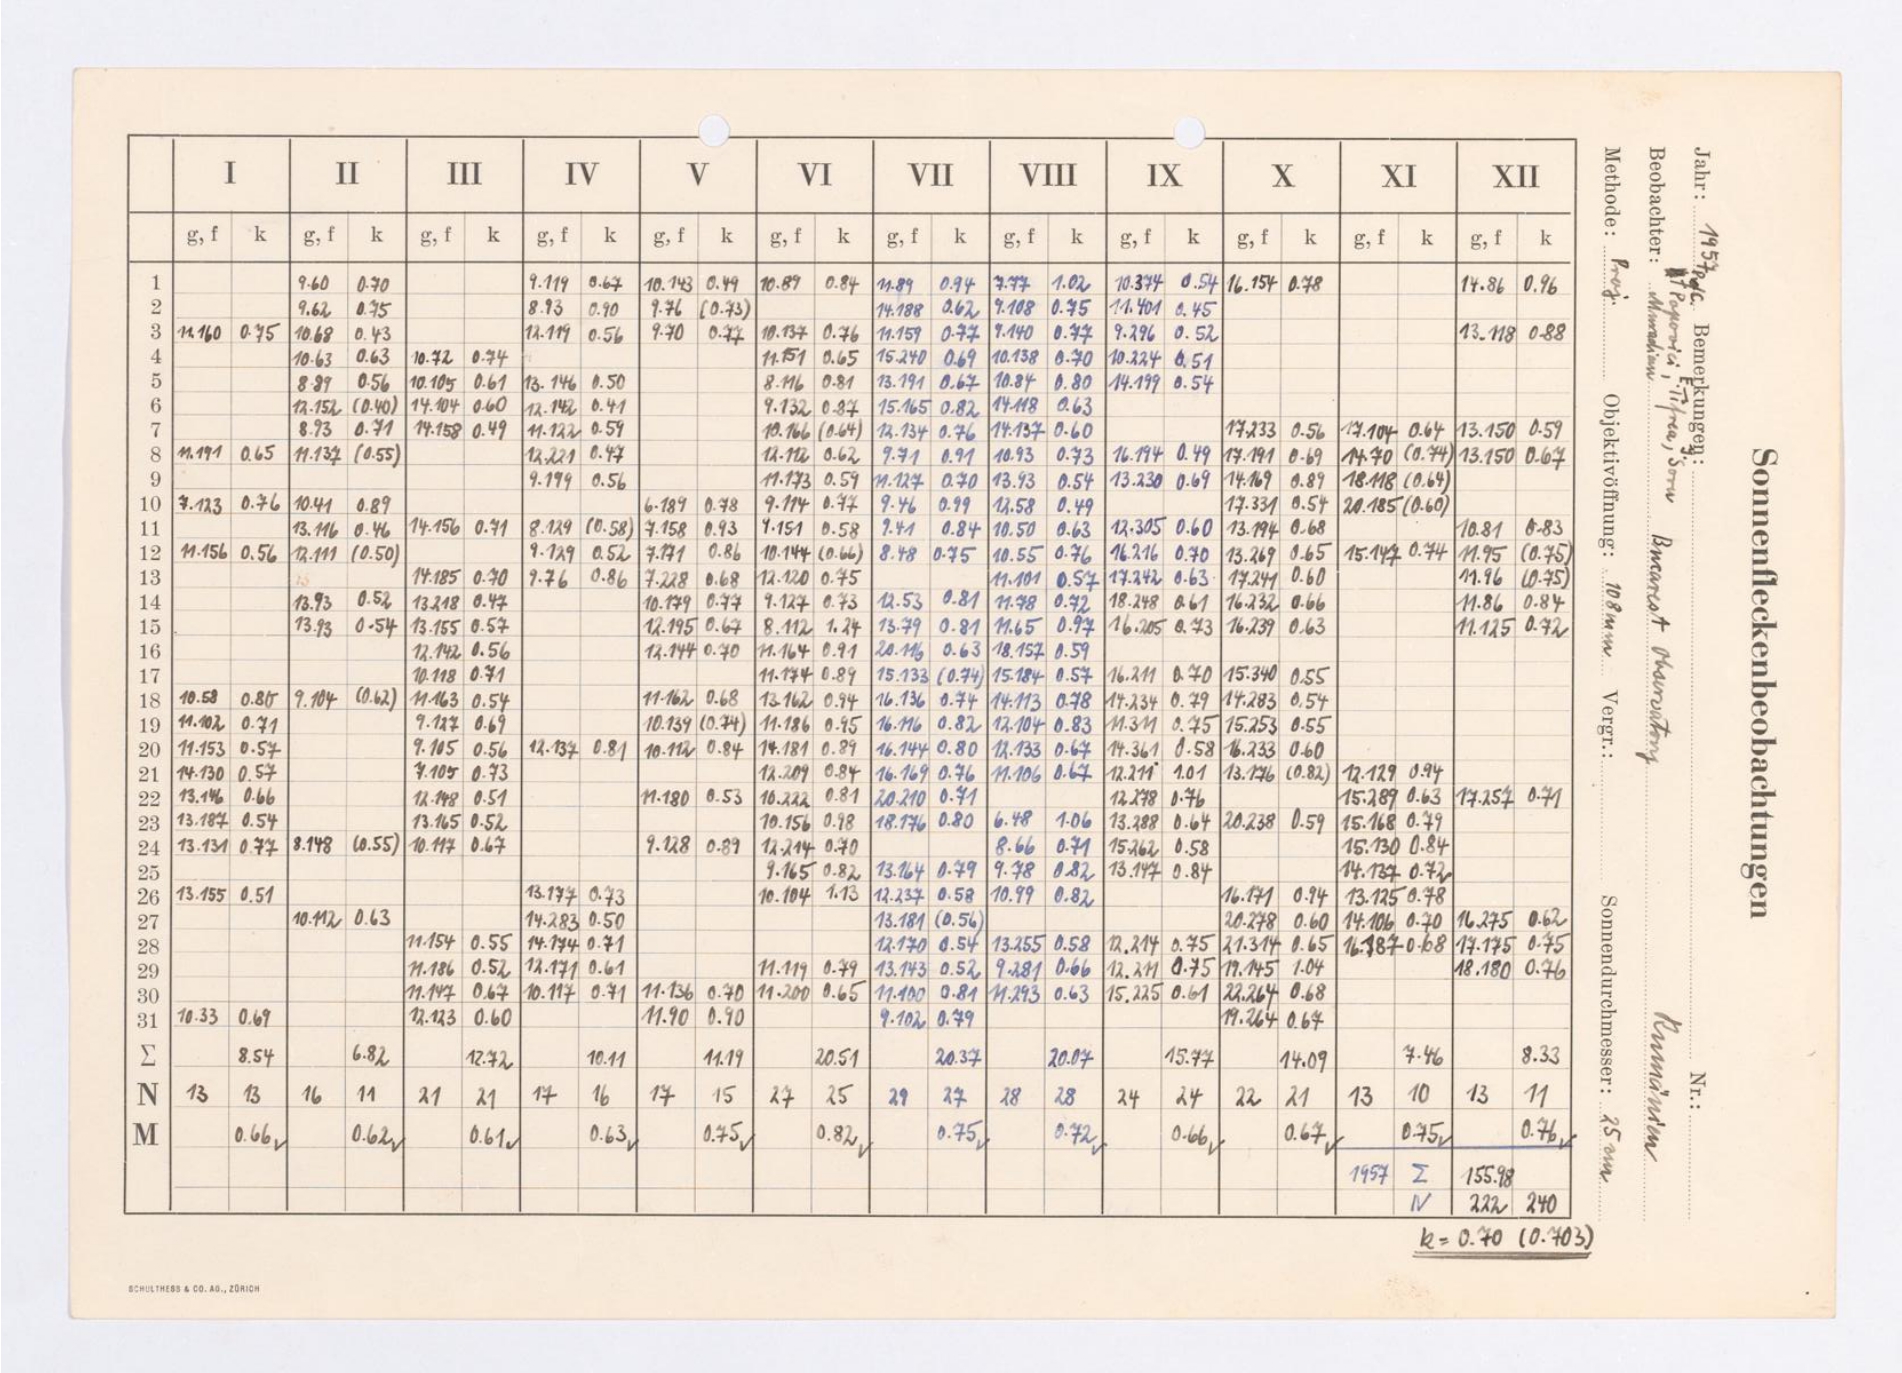 Sonnenfleckenbeobachtungen
Jahr: 1957 Bemerkungen: Nr.:
Beobachter: Popovici, Țifrea, Bucarest Observatory Rumänien
Methode: Proj. Objektivöffnung: 108mm Vergr.: Sonnendurchmesser: 25 cm
I II III IV V VI VII VIII IX X XI XII
g, f k g, f k g, f k g, f k g, f k g, f k g, f k g, f k g, f k g, f k g, f k g, f k
1 9.60 0.70 9.119 0.67 10.143 0.49 10.89 0.84 11.89 0.94 7.77 1.02 10.374 0.54 16.154 0.78 14.86 0.96
2 9.62 0.75 8.93 0.90 9.76 (0.73) 14.188 0.62 9.108 0.75 11.401 0.45
3 11.160 0.75 10.68 0.43 12.119 0.56 9.70 0.77 10.137 0.76 11.159 0.77 9.140 0.77 9.296 0.52 13.118 0.88
4 10.63 0.63 10.72 0.74 11.151 0.65 15.240 0.69 10.138 0.70 10.224 0.51
5 8.89 0.56 10.105 0.61 13.146 0.50 8.116 0.81 13.191 0.67 10.84 0.80 14.199 0.54
6 12.152 (0.40) 14.104 0.60 12.142 0.41 9.132 0.87 15.165 0.82 14.118 0.63
7 8.93 0.71 14.158 0.49 11.122 0.59 10.166 (0.64) 12.134 0.76 14.137 0.60 17.233 0.56 17.104 0.64 13.150 0.59
8 11.191 0.65 11.137 (0.55) 12.221 0.47 12.112 0.62 9.71 0.91 10.93 0.73 16.194 0.49 17.191 0.69 14.70 (0.74) 13.150 0.67
9 9.199 0.56 11.173 0.59 11.127 0.70 13.93 0.54 13.230 0.69 14.169 0.89 18.118 (0.64)
10 7.123 0.76 10.41 0.89 6.189 0.78 9.114 0.77 9.46 0.99 12.58 0.49 17.331 0.54 20.185 (0.60)
11 13.116 0.46 14.156 0.71 8.129 (0.58) 7.158 0.93 9.151 0.58 9.41 0.84 10.50 0.63 12.305 0.60 13.194 0.68 10.81 0.83
12 11.156 0.56 12.111 (0.50) 9.129 0.52 7.171 0.86 10.144 (0.66) 8.48 0.75 10.55 0.76 16.216 0.70 13.269 0.65 15.147 0.74 11.95 (0.75)
13 14.185 0.70 9.76 0.86 7.228 0.68 12.120 0.75 11.101 0.57 17.242 0.63 17.241 0.60 11.96 (0.75)
14 13.93 0.52 13.218 0.47 10.179 0.77 9.127 0.73 12.53 0.81 11.78 0.72 18.248 0.61 16.232 0.66 11.86 0.84
15 13.93 0.54 13.155 0.57 12.195 0.67 8.112 1.24 13.79 0.81 11.65 0.97 16.205 0.73 16.239 0.63 11.125 0.72
16 12.142 0.56 12.144 0.70 11.164 0.91 20.116 0.63 18.157 0.59
17 10.118 0.71 11.174 0.89 15.133 (0.74) 15.184 0.57 16.211 0.70 15.340 0.55
18 10.58 0.80 9.104 (0.62) 11.163 0.54 11.162 0.68 13.162 0.94 16.136 0.74 14.113 0.78 14.234 0.79 14.283 0.54
19 11.102 0.71 9.127 0.69 10.139 (0.74) 11.186 0.95 16.116 0.82 12.104 0.83 11.311 0.75 15.253 0.55
20 11.153 0.57 9.105 0.56 12.137 0.81 10.112 0.84 14.181 0.89 16.144 0.80 12.133 0.67 14.361 0.58 16.233 0.60
21 14.130 0.57 7.105 0.73 12.209 0.84 16.169 0.76 11.106 0.67 12.211 1.01 13.176 (0.82) 12.129 0.94
22 13.146 0.66 12.148 0.51 11.180 0.53 10.222 0.81 20.210 0.71 12.278 0.76 15.289 0.63 17.257 0.71
23 13.187 0.54 13.165 0.52 10.156 0.98 18.176 0.80 6.48 1.06 13.288 0.64 20.238 0.59 15.168 0.79
24 13.131 0.77 8.148 (0.55) 10.117 0.67 9.128 0.89 12.214 0.70 8.66 0.71 15.262 0.58 15.130 0.84
25 9.165 0.82 13.164 0.79 9.78 0.82 13.147 0.84 14.137 0.72
26 13.155 0.51 13.177 0.73 10.104 1.13 12.237 0.58 10.99 0.82 16.171 0.94 13.125 0.78
27 10.112 0.63 14.283 0.50 13.181 (0.56) 20.278 0.60 14.106 0.70 16.275 0.62
28 11.154 0.55 14.174 0.71 12.170 0.54 13.255 0.58 12.214 0.75 21.314 0.65 16.187 0.68 17.175 0.75
29 11.186 0.52 12.171 0.61 11.119 0.79 13.143 0.52 9.281 0.66 12.211 0.75 19.145 1.04 18.180 0.76
30 11.147 0.67 10.117 0.71 11.136 0.70 11.200 0.65 11.100 0.81 11.293 0.63 15.225 0.61 22.264 0.68
31 10.33 0.69 12.123 0.60 11.90 0.90 9.102 0.79 19.264 0.67
Σ 8.54 6.82 12.72 10.11 11.19 20.51 20.37 20.07 15.77 14.09 7.46 8.33
N 13 13 16 11 21 21 17 16 17 15 27 25 29 27 28 28 24 24 22 21 13 10 13 11
M 0.66 0.62 0.61 0.63 0.75 0.82 0.75 0.72 0.66 0.67 0.75 0.76
1957 Σ 155.98
N 222 240
k = 0.70 (0.703)
SCHULTHESS & CO. AG., ZÜRICH